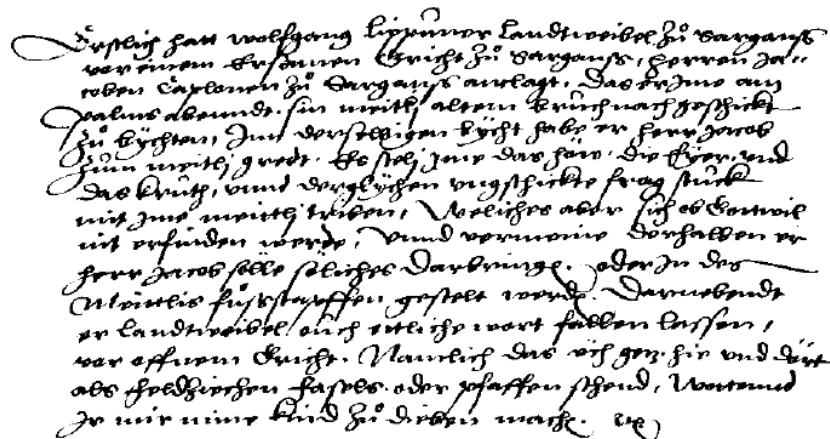 Erstlich hatt wolfgang Lippuner Landtweibel zů Sarganss
vor einem Ersamen Gricht zů Sarganss, herren Ja-
coben Caplonen zů Sarganss anclagt. Das er Jme am
palmabenndt. sin meitlj altem bruch nach geschickt
zů bychten, Jnn derselbigen bycht habe er herr Jacob
zum meitlj gredt. Es stelj Jme das höw. die Eyer. und
das kruth, unnd derglychen ungschickte frag stuck
mit Jme meittlj triben, Weliches aber sich ob Gott wil
nit erfinden werde, Unnd vermeine derhalben er
herr Jacob sölle söliches darbringen. oder Jn des
Meittlis fůssstapffen gestelt werden. Darnebendt
er Landtweibel ouch ettliche wort fallen lassen,
vor offnem Gricht. Namlich das üch hie und dört
als fasels. oder pfaffen schend, Wottennd
Jr mir mine kind zů dieben machen.